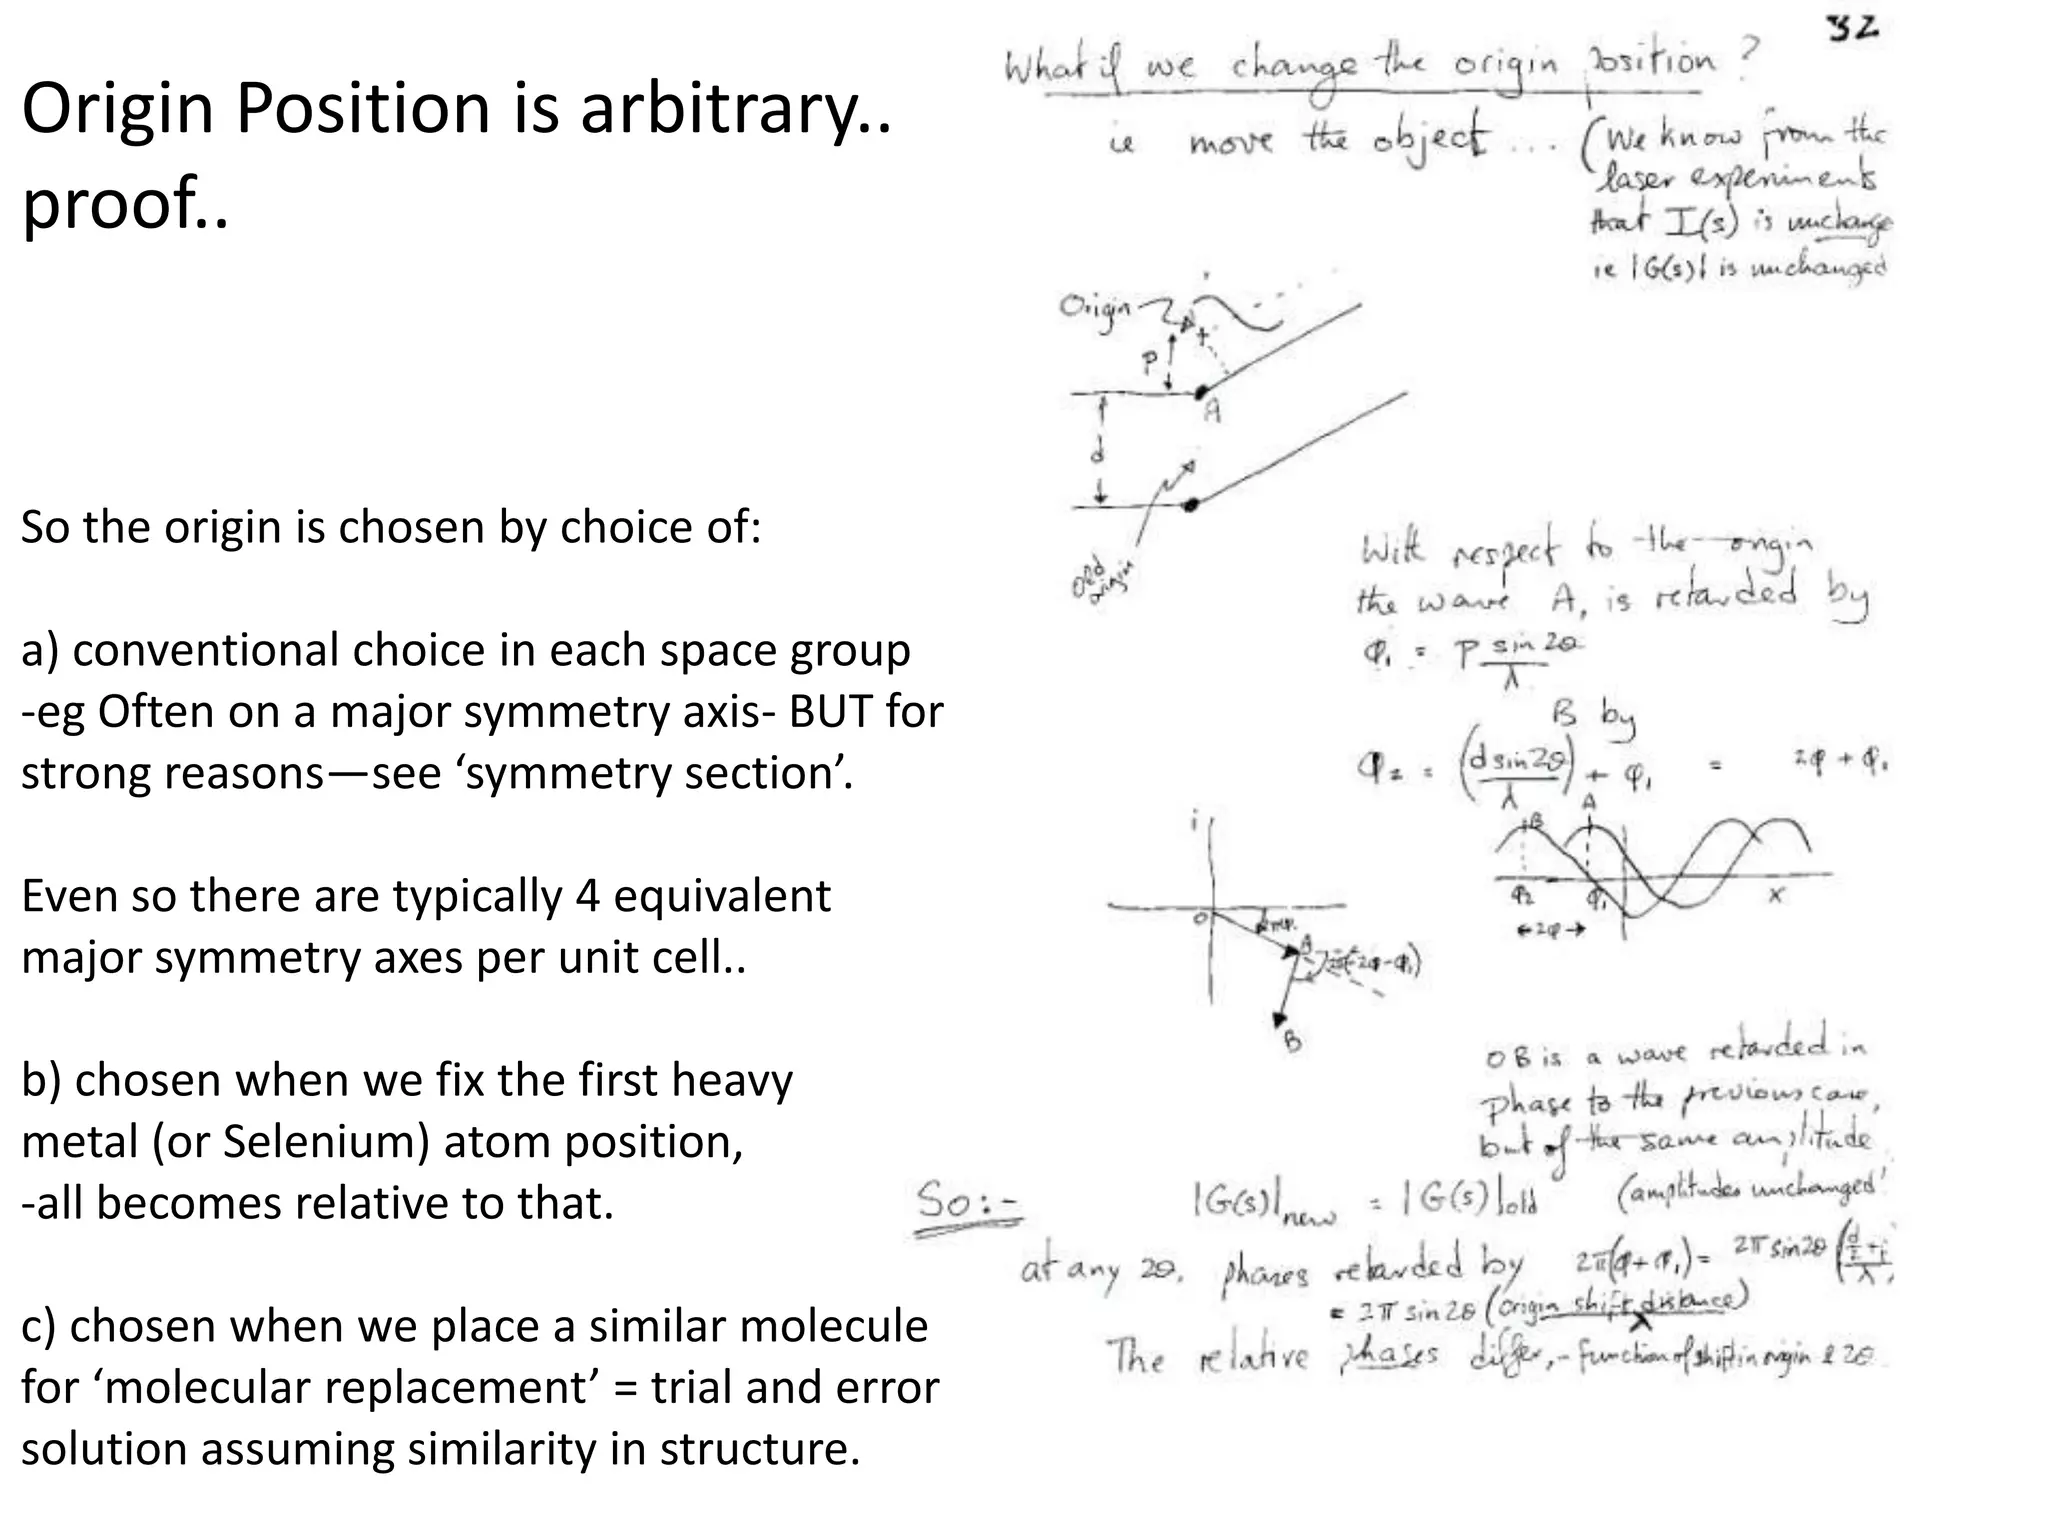 Origin Position is arbitrary..
proof..
So the origin is chosen by choice of:
a) conventional choice in each space group
-eg Often on a major symmetry axis- BUT for
strong reasons—see ‘symmetry section’.
Even so there are typically 4 equivalent
major symmetry axes per unit cell..
b) chosen when we fix the first heavy
metal (or Selenium) atom position,
-all becomes relative to that.
c) chosen when we place a similar molecule
for ‘molecular replacement’ = trial and error
solution assuming similarity in structure.
32
What if we change the origin position?
ie move the object ... (We know from the
laser experiments
that I(s) is unchange
ie |G(s)| is unchanged
Origin
P
A
d
Old
origin
With respect to the origin
the wave A, is retarded by
φ₁ = P sin 2θ
λ
B by
φ₂ = (d sin2θ) + φ₁ = 2φ + φ₁
λ
B A
φ₂ φ₁ x
←2φ→
i
O
A
B
OB is a wave retarded in
phase to the previous case,
but of the same amplitude
So:- |G(s)|new = |G(s)|old (amplitudes unchanged!
at any 2θ, phases retarded by 2π(φ+φ₁) = 2π sin2θ
= 2π sin 2θ (origin shift distance)
λ
The relative phases differ, - function of shift in origin & 2θ